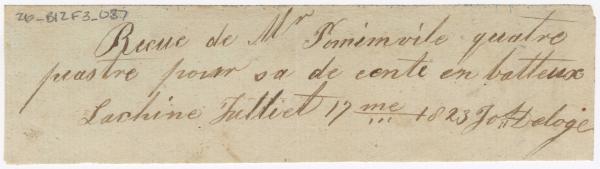 26_B12F3_087
Recue de Mr Pominvile quatre
piastre pour sa de cente en batteux
Lachine Julliet 17 me 1823 Jos Deloge